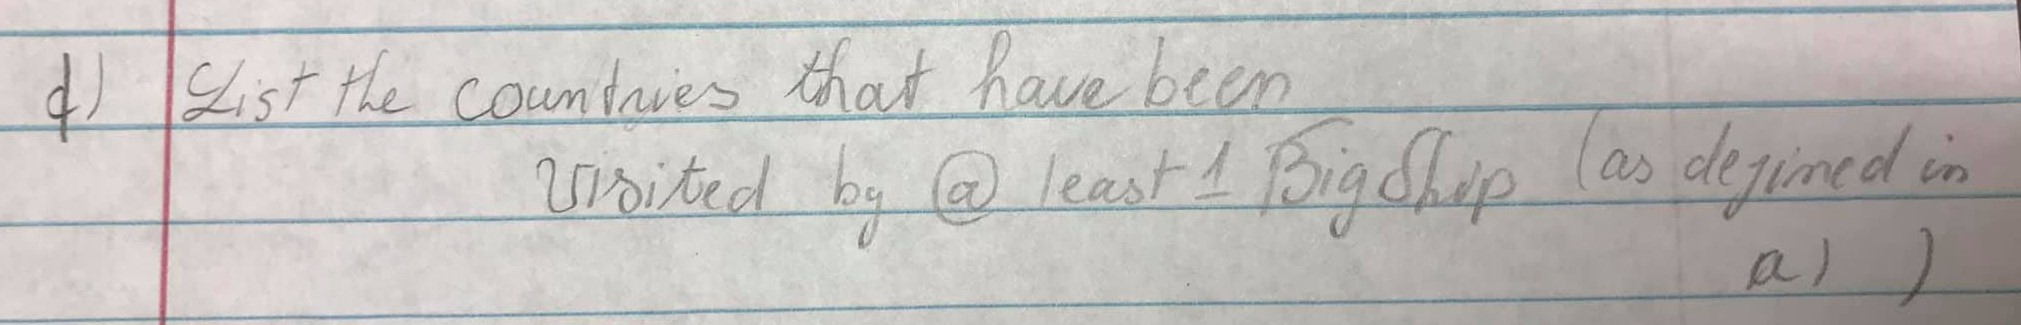 d) List the countries that have been
visited by @ least 1 BigShip (as defined in
a) )